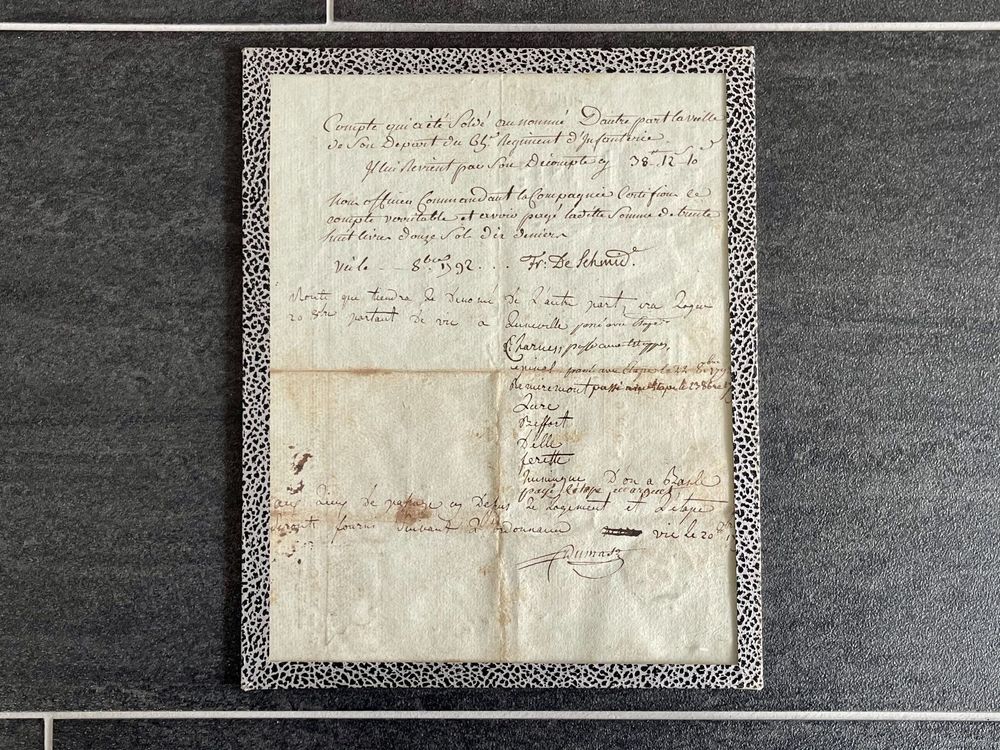 Compte qui a été Soldé au nommé Dautre part la veille
de Son Depart du Regiment d'Infanterie
Il lui Revient par Son Decompte cy 38.12.10
Nous officier Commandant la Compagnie Certifions le
compte veritable et avoir payé ladite Somme de trente
huit livres douze Sols dix deniers
8bre 1792 ... Fr: De Schmid
Route que tiendra le Denomé De L'autre part ira Loger
20 8bre partant De vic a Luneville passé avec Etape
Charmes, passé avec Etappe
epinal passé avec Etape le 22 8bre
Remiremont passé avec Etape le 23 8bre
Lure
Beffort
Delle
ferette
huningue D'on a Basle
payé l'étape en argent
aux Lieux de passage cy Dessus Le Logement et L'etape
Seront fournis Suivant L'ordonnance vic le 20
Dumast